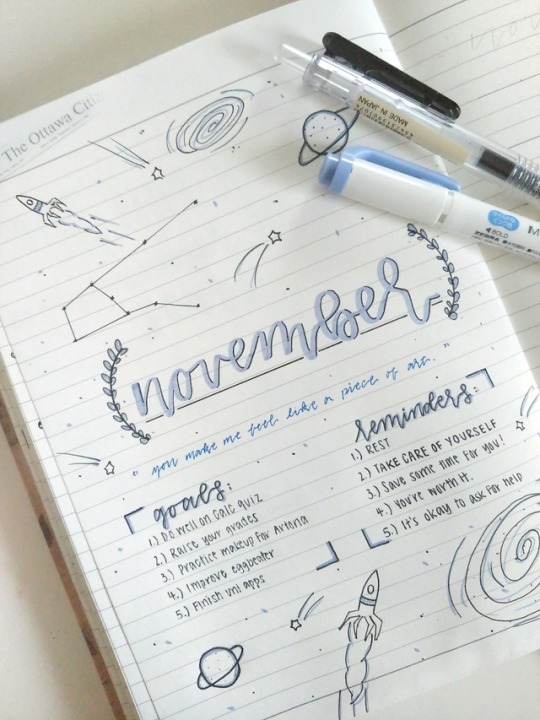 The Ottawa Citi
MADE IN JAPAN
BOLD
ZEBRA
november
" you make me feel like a piece of art. "
goals:
1.) Do well on Calc quiz
2.) Raise your grades
3.) Practice makeup for Artona
4.) Improve eggbeater
5.) Finish uni apps
reminders:
1.) REST
2.) TAKE CARE OF YOURSELF
3.) Save some time for you!
4.) You're worth it.
5.) It's okay to ask for help